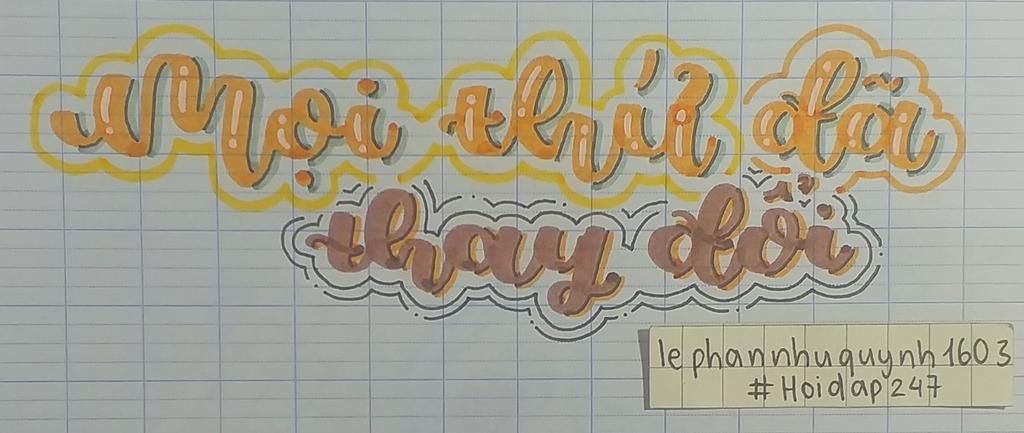 Mọi thứ đã
thay đổi
lephannhuquynh1603
#Hoidap247